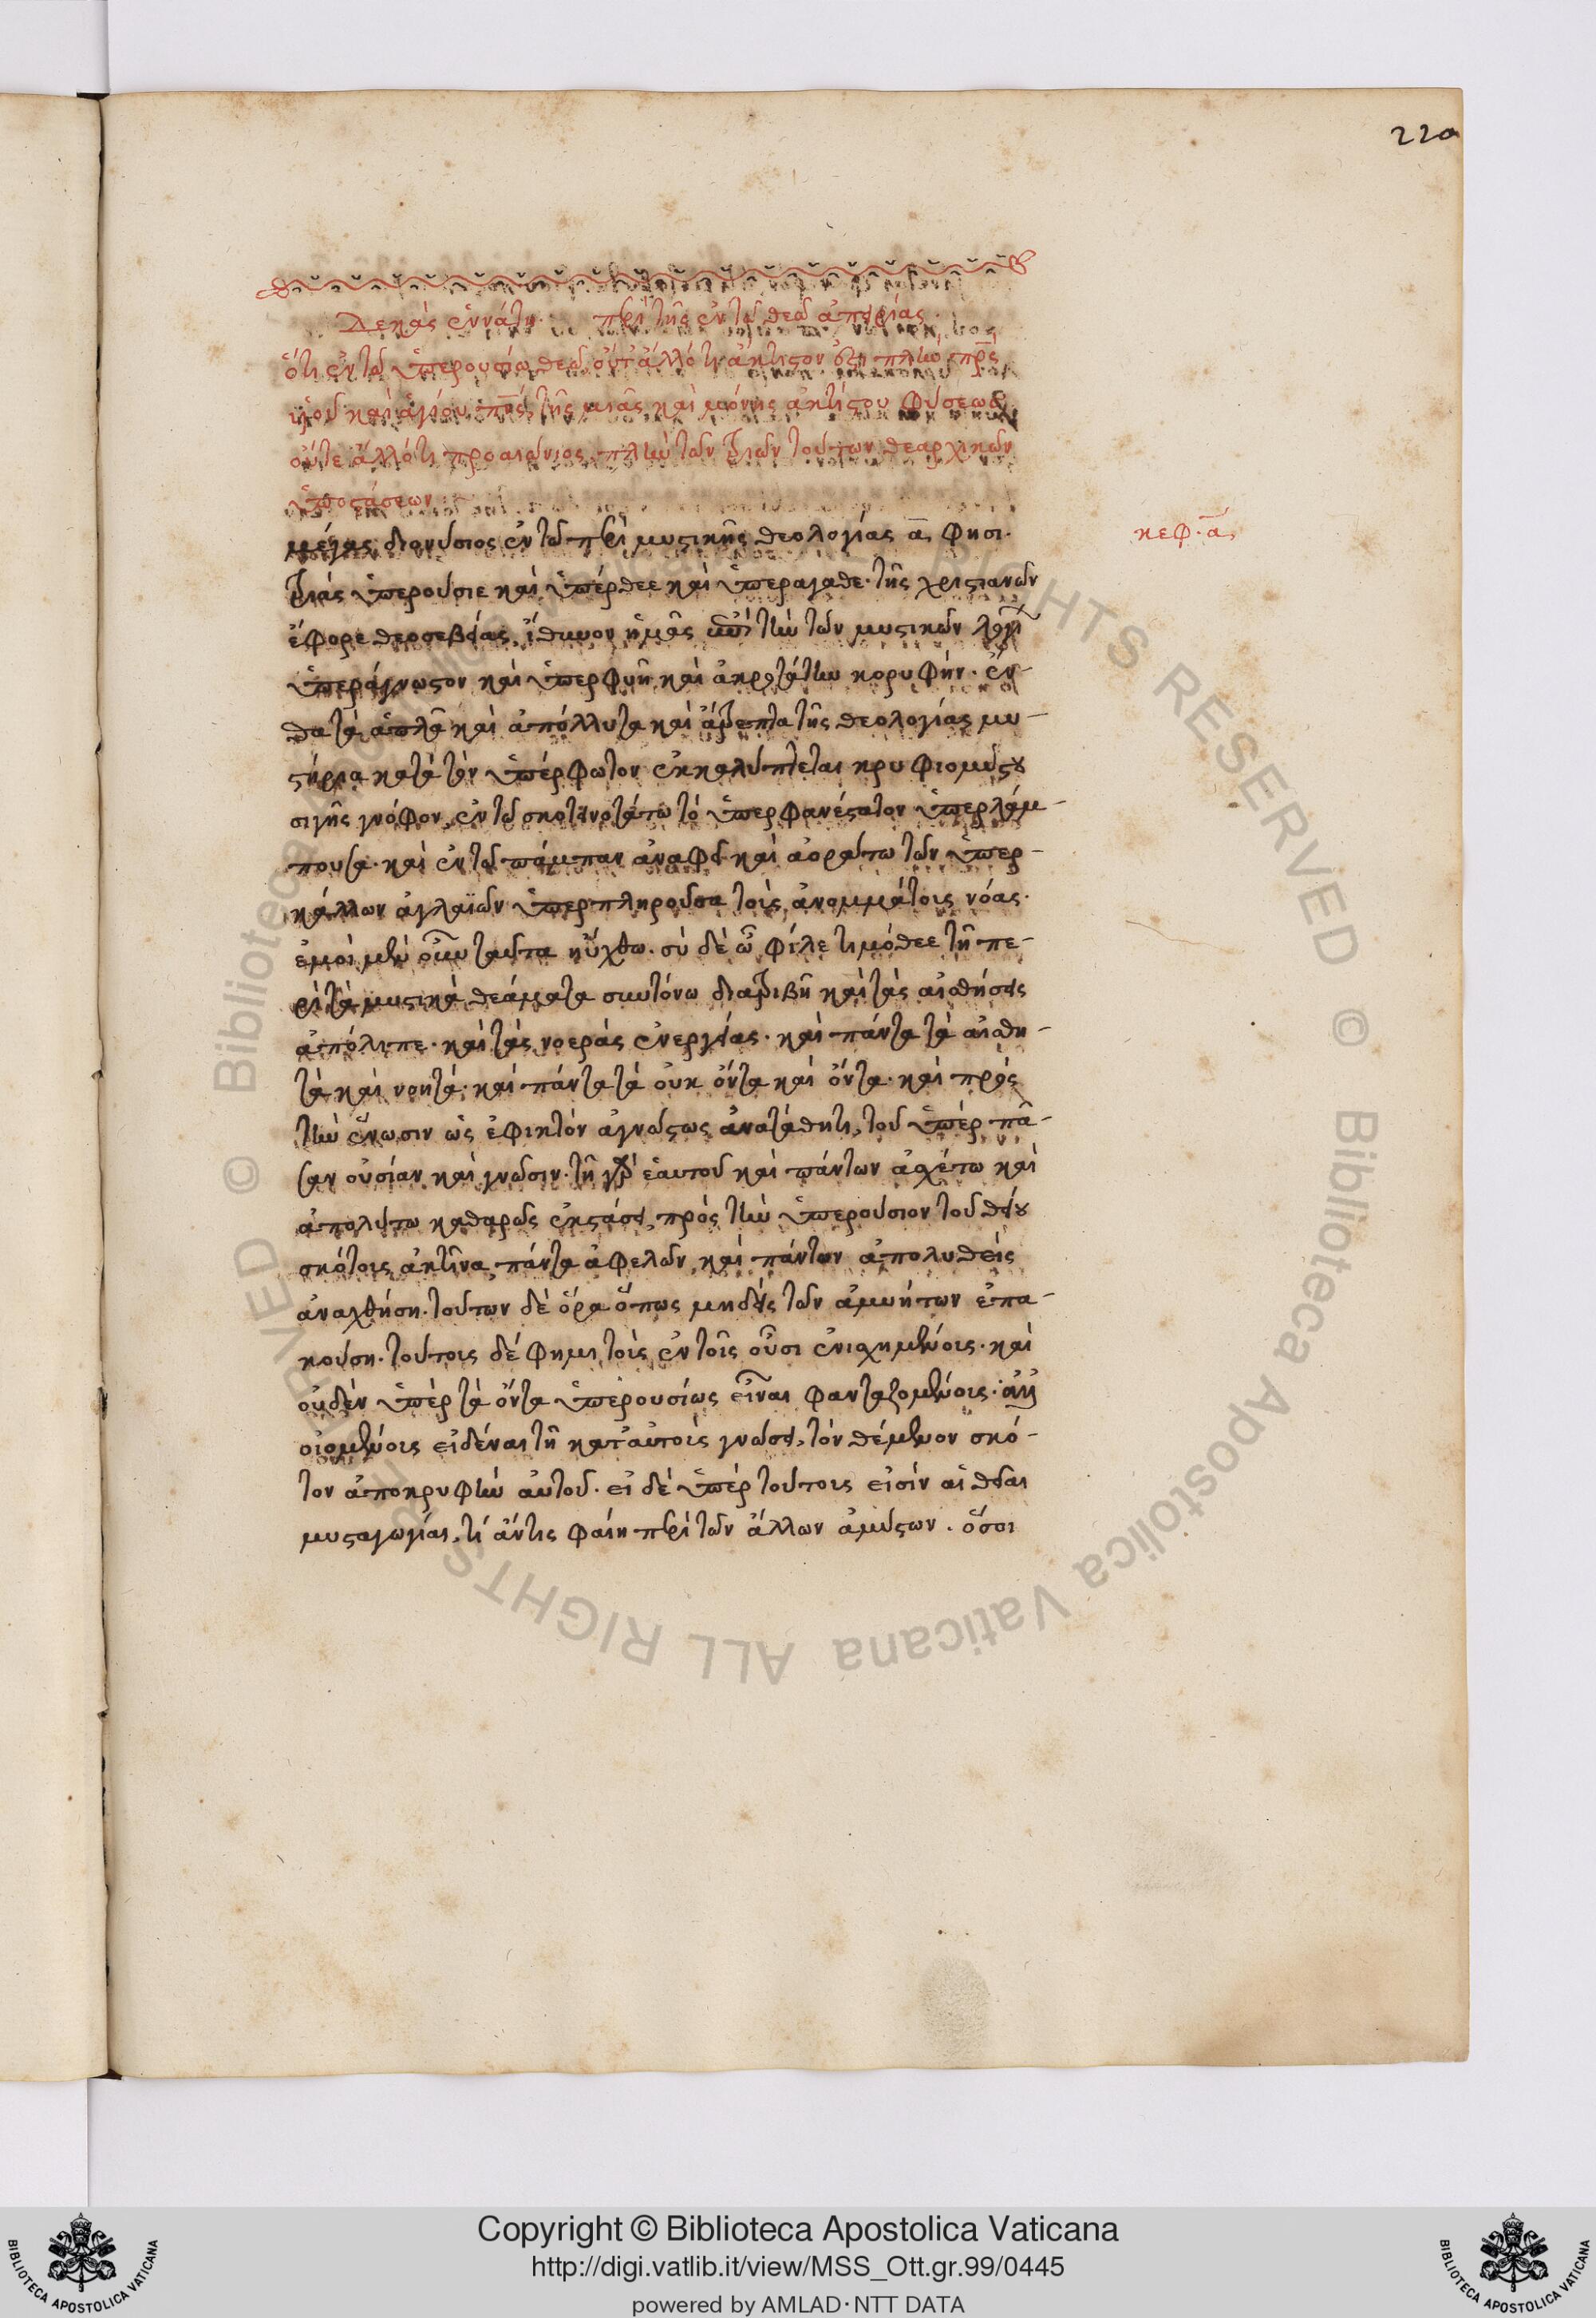 220
Δεκὰς ἐννάτη. περὶ τῆς ἐν τῶ θεῶ ἀπειρίας.
ὅτι ἐν τῶ ὑπερουσίω θεῶ οὔτ' ἄλλό τι ἄκτιστον ἐστι πλὴν πρς
υἱοῦ καὶ ἁγίου πνς τῆς μιᾶς καὶ μόνης ἀκτίστου φύσεως
οὔτε ἄλλό τι προαιώνιος πλὴν τῶν τριῶν τούτων θεαρχικῶν
ὑποστάσεων
μέγας διονύσιος ἐν τῶ περὶ μυστικῆς θεολογίας α φησι.
κεφ. α
τριὰς ὑπερούσιε καὶ ὑπέρθεε καὶ ὑπεράγαθε. τῆς χριστιανῶν
ἔφορε θεοσεβείας, ἴθυνον ἡμᾶς ἐπὶ τὴν τῶν μυστικῶν λογί
ὑπεράγνωστον καὶ ὑπερφυῆ καὶ ἀκροτάτην κορυφήν. ἔν-
θα τὰ ἁπλᾶ καὶ ἀπόλλυτα καὶ ἄτρεπτα τῆς θεολογίας μυ-
στήρια κατὰ τὸν ὑπέρφωτον ἐκκαλύπτεται κρυφιομύστου
σιγῆς γνόφον, ἐν τῶ σκοτεινοτάτω τὸ ὑπερφανέστατον ὑπερλάμ-
πουτα. καὶ ἐν τῶ πάμπαν ἀναφεῖ καὶ ἀοράτω τῶν ὑπερ-
κάλλων ἀγλαϊῶν ὑπερπληροῦσα τοὺς ἀνομμάτους νόας.
ἐμοὶ μὲν οὖν ταῦτα ηὔχθω. σὺ δὲ ὦ φίλε τιμόθεε τῆ πε-
ρὶ τὰ μυστικὰ θεάματα συντόνω διατριβῆ καὶ τὰς αἰσθήσεις
ἀπόλιπε. καὶ τὰς νοερὰς ἐνεργείας. καὶ πάντα τὰ αἰσθη-
τὰ καὶ νοητά. καὶ πάντα τὰ οὐκ ὄντα καὶ ὄντα. καὶ πρὸς
τὴν ἕνωσιν ὡς ἐφικτὸν ἀγνώστως ἀνατάθητι, τοῦ ὑπὲρ πᾶ-
σαν οὐσίαν καὶ γνῶσιν. τῆ γὰρ ἑαυτοῦ καὶ πάντων ἀσχέτω καὶ
ἀπολύτω καθαρῶς ἐκστάσει, πρὸς τὴν ὑπερούσιον τοῦ θείου
σκότους ἀκτῖνα πάντα ἀφελὼν καὶ πάντων ἀπολυθεὶς
ἀναχθήση. τούτων δὲ ὅρα ὅπως μηδεὶς τῶν ἀμυήτων ἐπα-
κούση. τούτους δέ φημι τοὺς ἐν τοῖς οὖσι ἐνισχημένους. καὶ
οὐδὲν ὑπὲρ τὰ ὄντα ὑπερουσίως εἶναι φανταζομένους. ἀλλ
οἰομένους εἰδέναι τῆ κατ' αὐτοὺς γνώσει, τὸν θέμενον σκό-
τον ἀποκρυφὴν αὐτοῦ. εἰ δὲ ὑπὲρ τούτους εἰσὶν αἱ θεῖαι
μυσταγωγίαι, τί ἄν τις φαίη περὶ τῶν ἄλλων ἀμύστων. ὅσοι
Copyright © Biblioteca Apostolica Vaticana
http://digi.vatlib.it/view/MSS_Ott.gr.99/0445
powered by AMLAD·NTT DATA
© Biblioteca Apostolica Vaticana ALL RIGHTS RESERVED
BIBLIOTECA APOSTOLICA VATICANA
BIBLIOTECA APOSTOLICA VATICANA